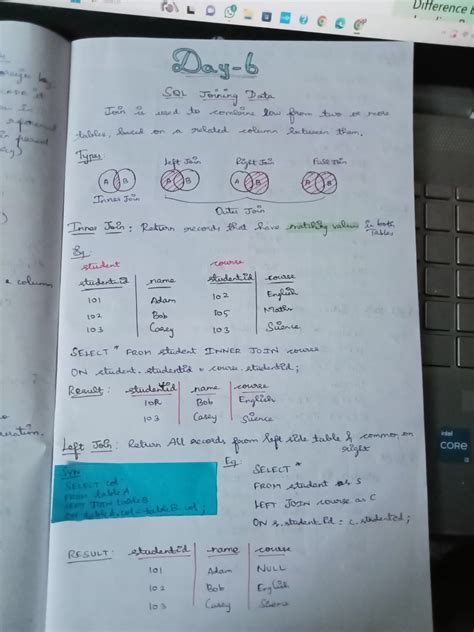 Difference B
Day-6
SQL Joining Data
Join is used to combine row from two or more
tables, based on a related column between them.
Types:
Left Join Right Join Full Join
A B A B A B A B
Inner Join
Outer Join
Inner Join : Return records that have matching values in both
Tables
Eg:
student course
studentid name studentid course
101 Adam 102 English
102 Bob 105 Maths
103 Casey 103 Science
SELECT * FROM student INNER JOIN course
ON student.studentid = course.studentid;
Result : studentid name course
102 Bob English
103 Casey Science
Left Join : Return All records from left side table & common on
right
SYN
SELECT col
FROM tableA
LEFT JOIN tableB
ON tableA.col = tableB.col ;
Eg: SELECT *
FROM student as S
LEFT JOIN course as C
ON s.studentid = c.studentid;
RESULT : studentid name course
101 Adam NULL
102 Bob English
103 Casey Science
a column
intel
CORE
i3